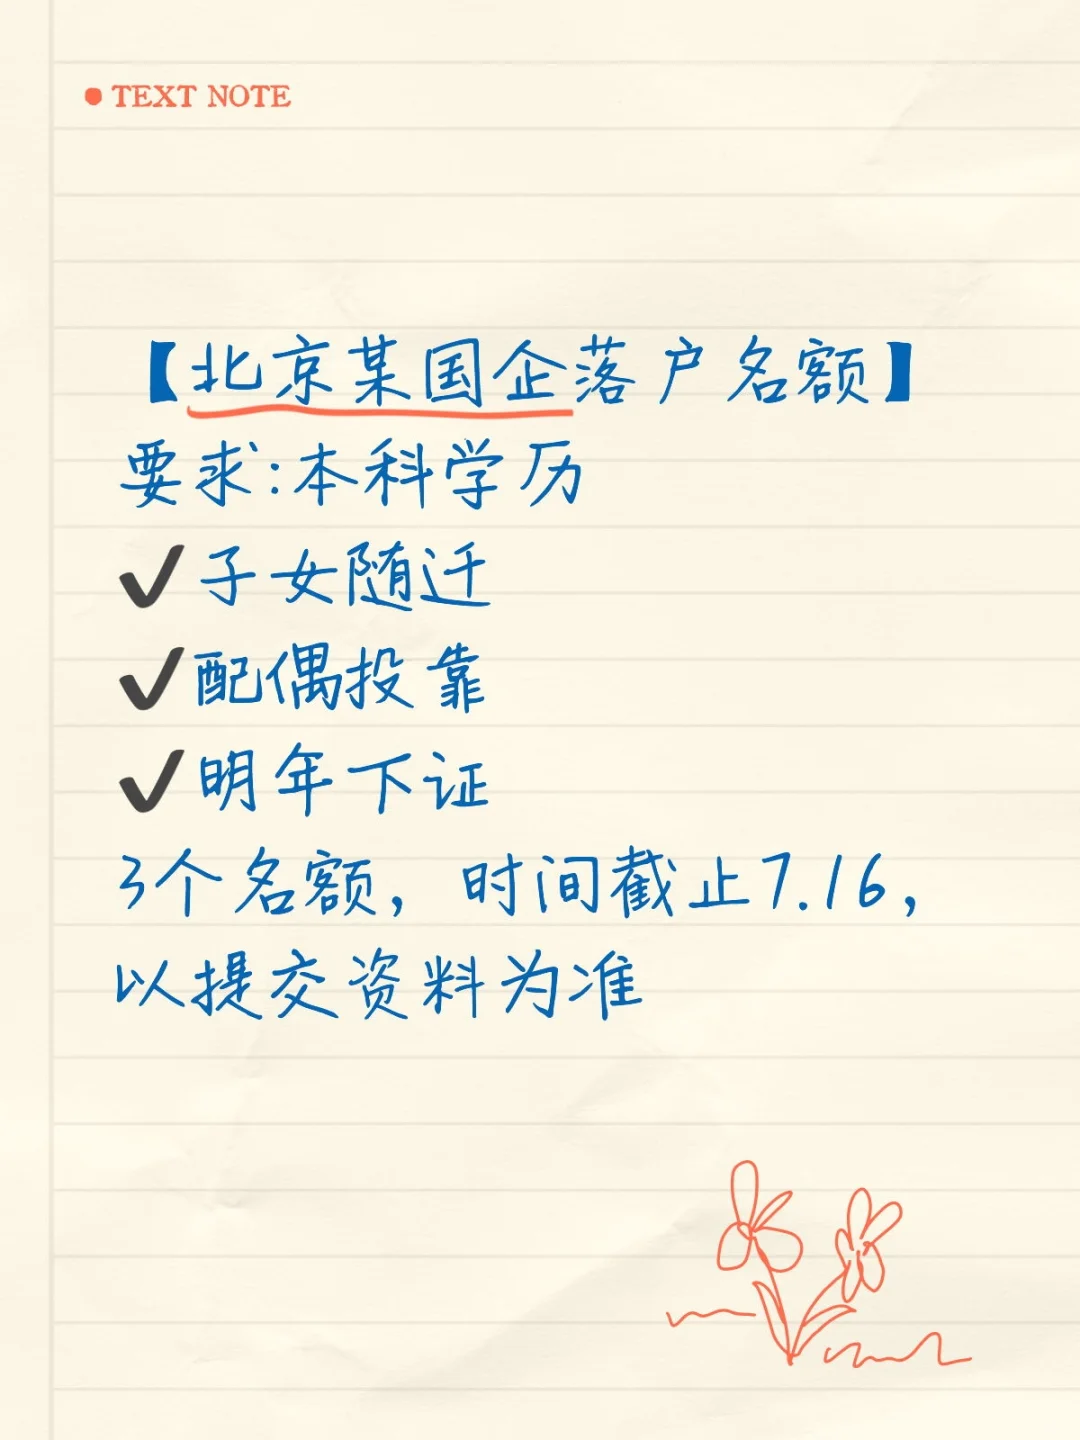 TEXT NOTE
【北京某国企落户名额】
要求:本科学历
✔子女随迁
✔配偶投靠
✔明年下证
3个名额，时间截止7.16，
以提交资料为准